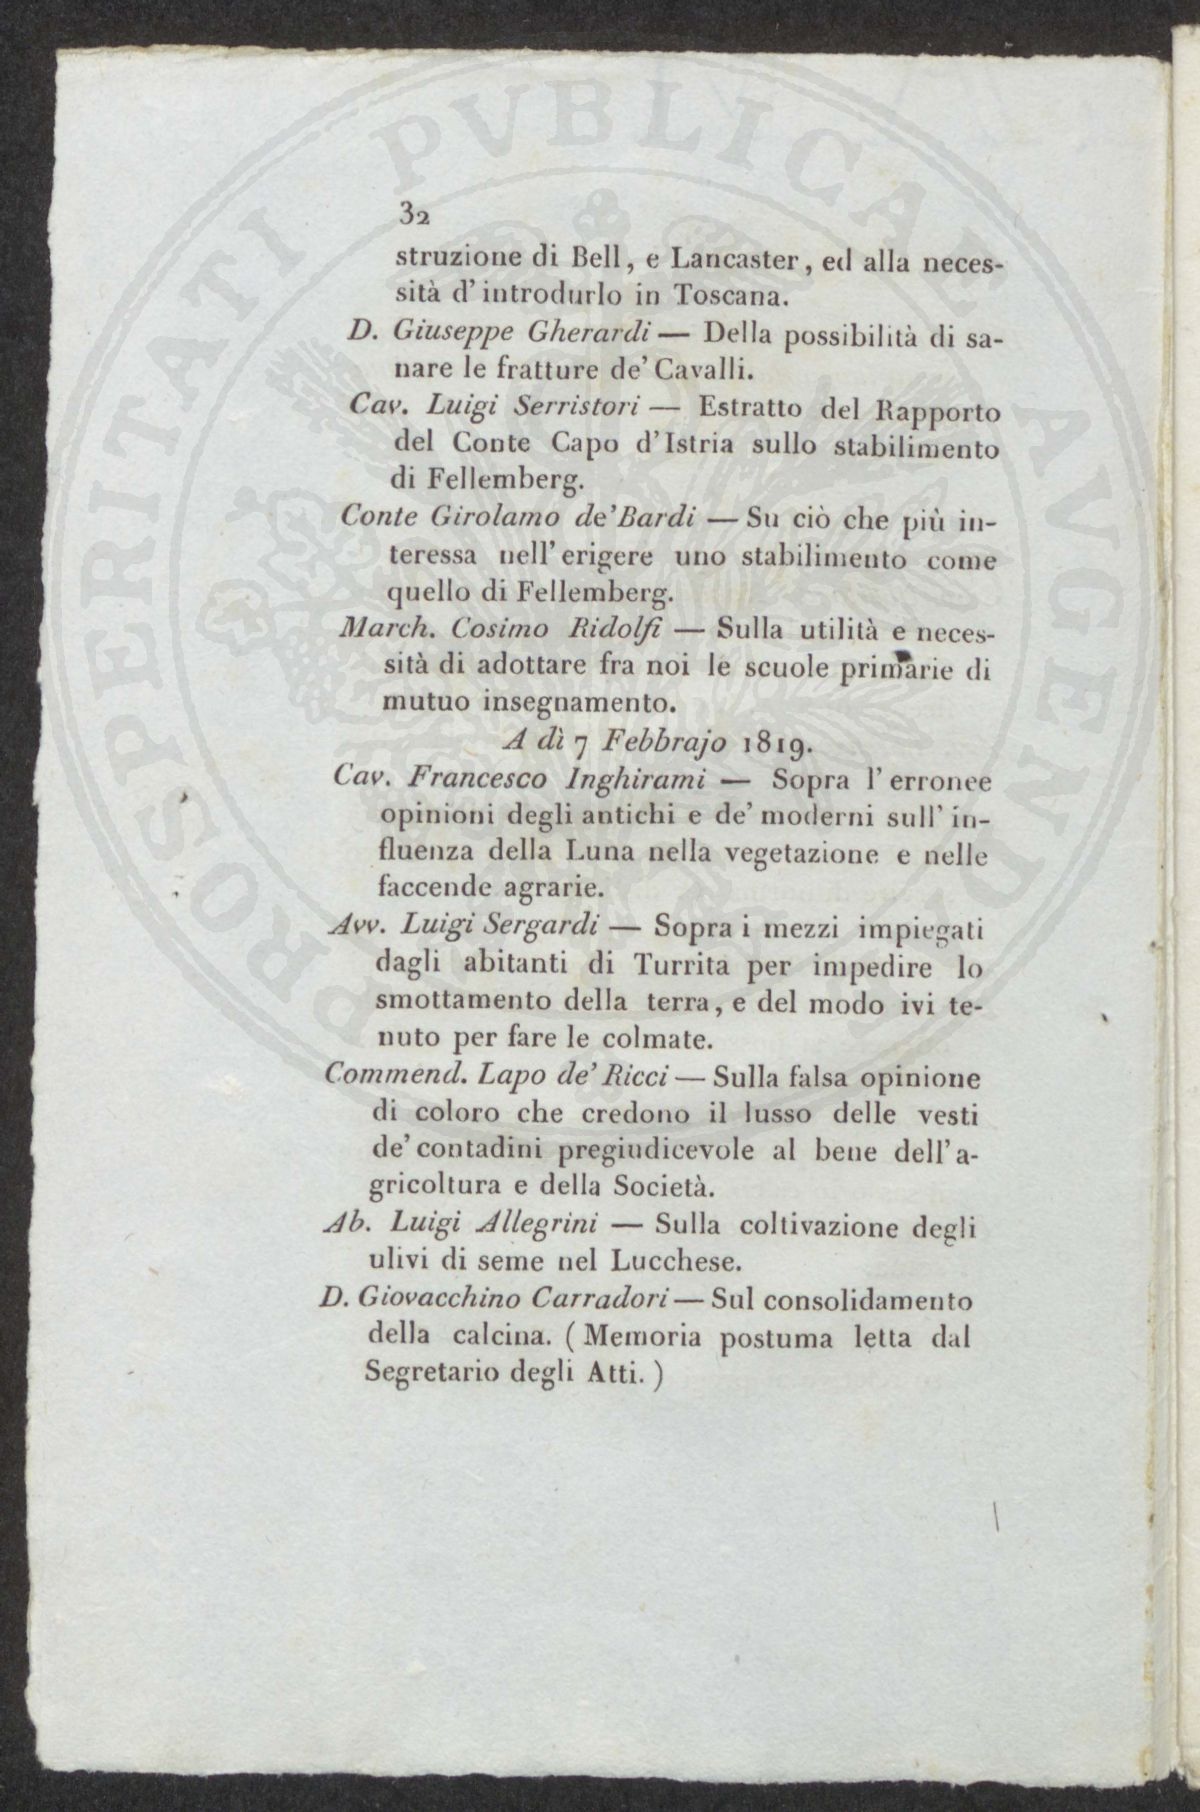 PROSPERITATI PVBLICAE AVGENDAE
32
struzione di Bell, e Lancaster, ed alla neces-
sità d'introdurlo in Toscana.
D. Giuseppe Gherardi — Della possibilità di sa-
nare le fratture de' Cavalli.
Cav. Luigi Serristori — Estratto del Rapporto
del Conte Capo d'Istria sullo stabilimento
di Fellemberg.
Conte Girolamo de' Bardi — Su ciò che più in-
teressa nell'erigere uno stabilimento come
quello di Fellemberg.
March. Cosimo Ridolfi — Sulla utilità e neces-
sità di adottare fra noi le scuole primarie di
mutuo insegnamento.
A dì 7 Febbrajo 1819.
Cav. Francesco Inghirami — Sopra l'erronee
opinioni degli antichi e de' moderni sull'in-
fluenza della Luna nella vegetazione e nelle
faccende agrarie.
Avv. Luigi Sergardi — Sopra i mezzi impiegati
dagli abitanti di Turrita per impedire lo
smottamento della terra, e del modo ivi te-
nuto per fare le colmate.
Commend. Lapo de' Ricci — Sulla falsa opinione
di coloro che credono il lusso delle vesti
de' contadini pregiudicevole al bene dell'a-
gricoltura e della Società.
Ab. Luigi Allegrini — Sulla coltivazione degli
ulivi di seme nel Lucchese.
D. Giovacchino Carradori — Sul consolidamento
della calcina. (Memoria postuma letta dal
Segretario degli Atti.)